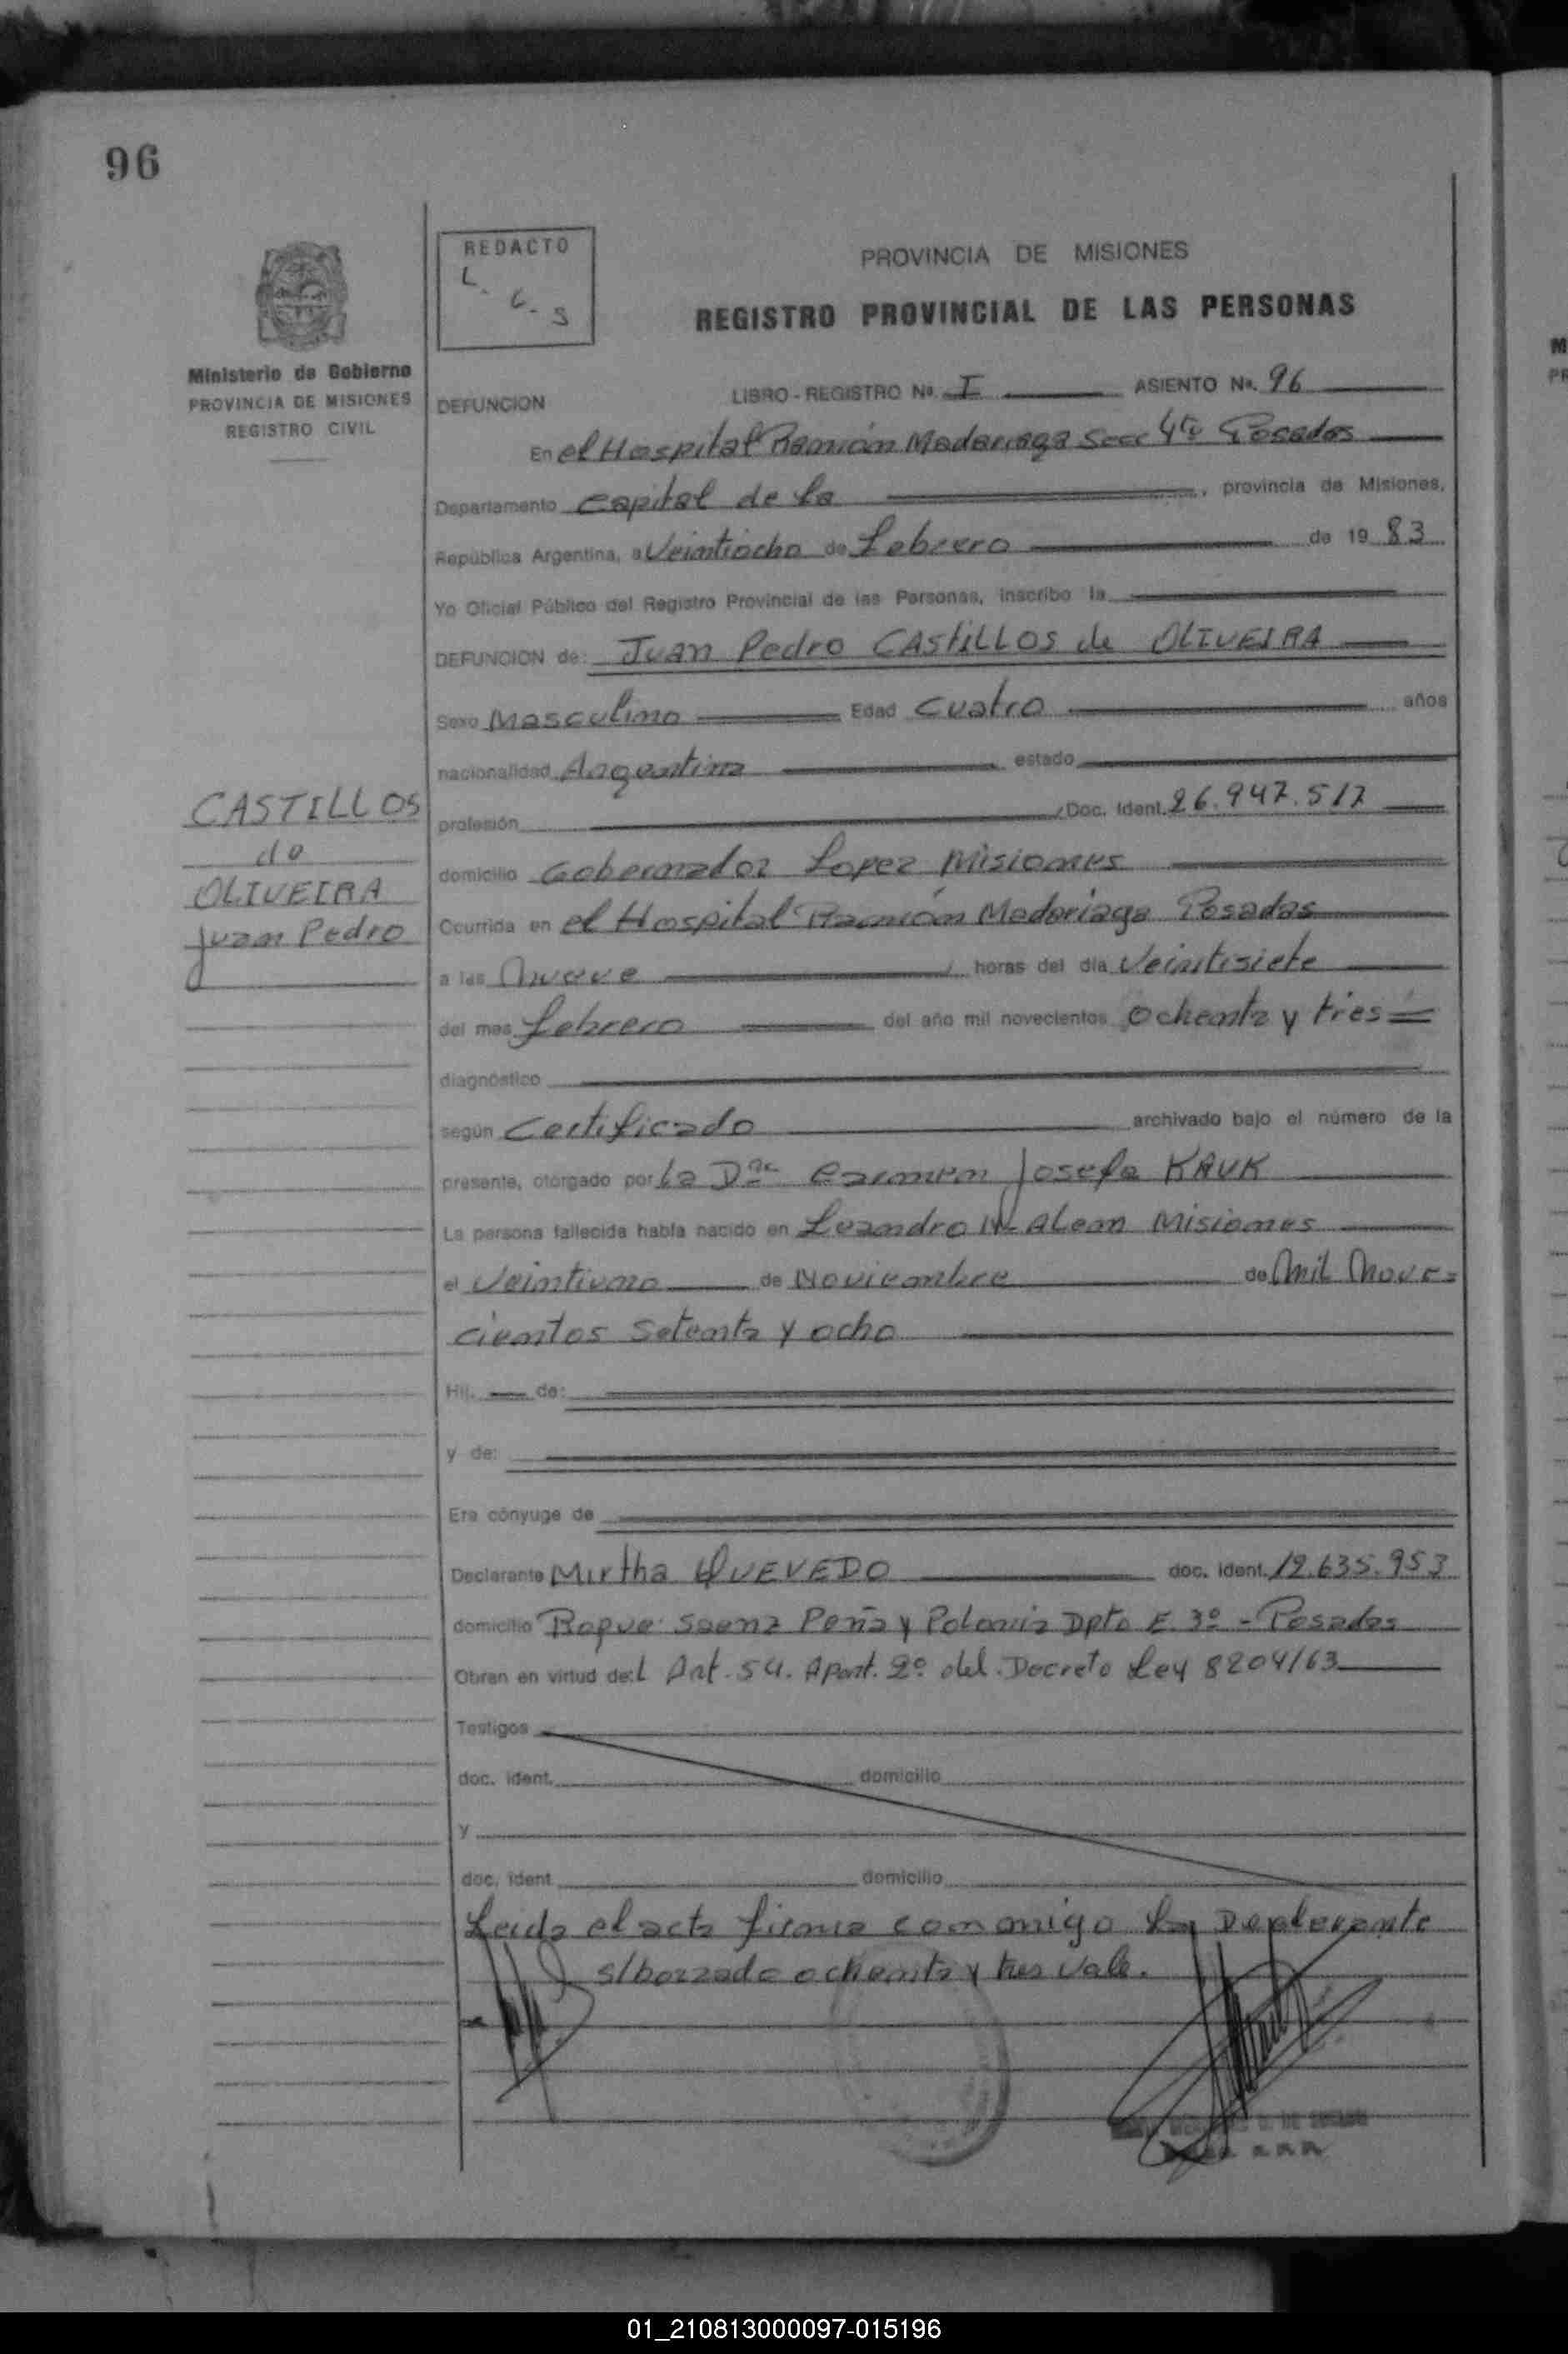 96
REDACTO
L. C. S
PROVINCIA DE MISIONES
REGISTRO PROVINCIAL DE LAS PERSONAS
Ministerio de Gobierno
PROVINCIA DE MISIONES
REGISTRO CIVIL
DEFUNCION
LIBRO - REGISTRO Nº. I ASIENTO Nº. 96
En el Hospital Ramón Madariaga Secc 4ta Posadas
Departamento Capital de la , provincia de Misiones,
República Argentina, a Veintiocho de Febrero de 19 83
Yo Oficial Público del Registro Provincial de las Personas, inscribo la
DEFUNCION de: Juan Pedro CASTILLOS de OLIVEIRA
Sexo Masculino Edad Cuatro años
nacionalidad Argentina estado
CASTILLOS
de
OLIVEIRA
Juan Pedro
profesión Doc. Ident. 26.947.517
domicilio Gobernador Lopez Misiones
Ocurrida en el Hospital Ramón Madariaga Posadas
a las Nueve horas del día Veintisiete
del mes Febrero del año mil novecientos Ochenta y tres
diagnóstico
según Certificado archivado bajo el número de la
presente, otorgado por La Dra Carmen Josefa KAUK
La persona fallecida había nacido en Leandro N. Alem Misiones
el Veintiuno de Noviembre de Mil Nove=
cientos Setenta y ocho
Hij. de:
y de:
Era cónyuge de
Declarante Mirtha QUEVEDO doc. ident. 12.635.953
domicilio Roque Saenz Peña y Polonia Dpto E. 3º - Posadas
Obran en virtud de:l Art. 54. Apart. 2º del. Decreto Ley 8204/63
Testigos
doc. ident. domicilio
y
doc. ident. domicilio
Leida el acta firma conmigo La Declarante
s/borrado ochenta y tres Vale.
01_210813000097-015196